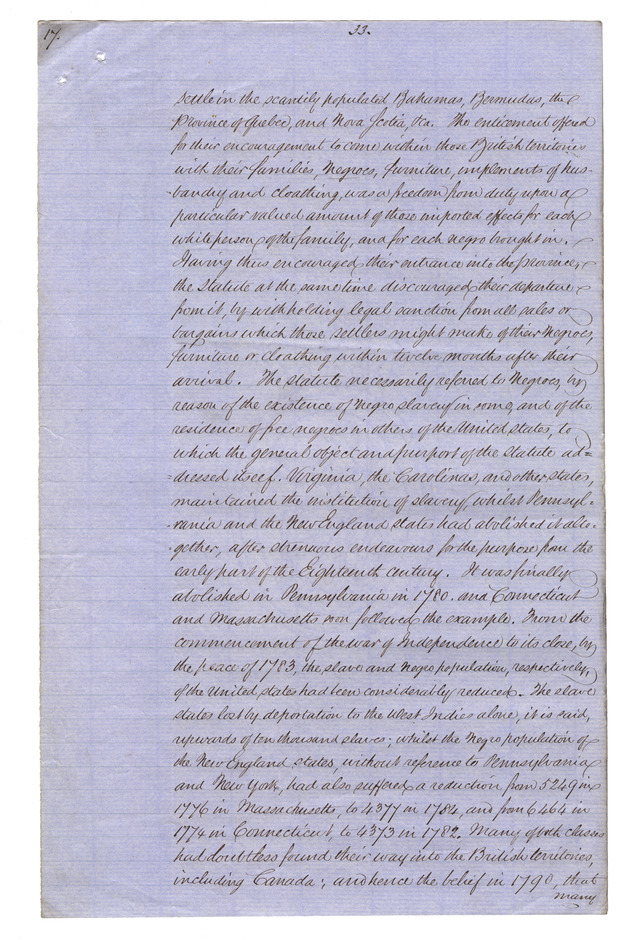 17.
33.
settle in the scantily populated Bahamas, Bermudas, the
Province of Quebec, and Nova Scotia, &ca. The enticement offered
for their encouragement to come within those British territories
with their families, Negroes, furniture, implements of hus-
-bandry and cloathing, was a freedom from duty upon a
particular valued amount of those imported effects for each
white person of the family, and for each negro brought in.
Having thus encouraged their entrance into the province,
the statute at the same time discouraged their departure
from it, by withholding legal sanction from all sales or
bargains which those settlers might make of their Negroes,
furniture or cloathing within twelve months after their
arrival. The statute necessarily referred to Negroes, by
reason of the existence of Negro slavery in some, and of the
residence of free negroes in others of the United States, to
which the general object and purport of the statute ad=
=dressed itself. Virginia, the Carolinas, and other states,
maintained the institution of slavery, whilst Pennsyl-
-vania and the New England states had abolished it alto-
-gether, after strenuous endeavours for the purpose from the
early part of the Eighteenth century. It was finally
abolished in Pennsylvania in 1780. and Connecticut
and Massachusetts soon followed the example. From the
commencement of the war of Independence to its close, by
the peace of 1783, the slave and Negro population, respectively,
of the United States had been considerably reduced. The slave
states lost by deportation to the West Indies alone, it is said,
upwards of ten thousand slaves; whilst the Negro population of
the New England states, without reference to Pennsylvania
and New York, had also suffered a reduction from 5249 in
1776 in Massachusetts, to 4377 in 1784, and from 6464 in
1774 in Connecticut, to 4373 in 1782. Many of both classes
had doubtless found their way into the British territories,
including Canada; and hence the belief in 1790, that
many